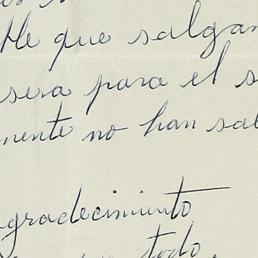 ble que salgan
sera para el s
mente no han sal
gradecimiento
todo,